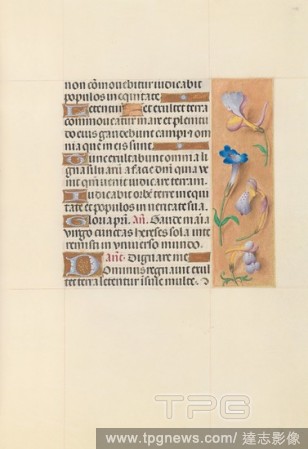 non cōmouebitur iudicabit
populos in equitate
Letentur celi et exultet terra
commoueatur mare et plenitu
do eius gaudebunt campi et om
nia que in eis sunt
Tunc exultabunt omnia li
gna siluarū a facie dn̄i quia ve
nit qm̄ venit iudicare terram.
Iudicabit orbē terre in equi
tate et populos in veritate sua.
Gloria pr̄i. An̄. Gaude maria
virgo cunctas hereses sola inte
remisti in vniuerso mundo.
An̄e. Dignare me
Dominus regnauit exul
tet terra letentur īsule multe.
TPG
www.tpgnews.com/ 達志影像